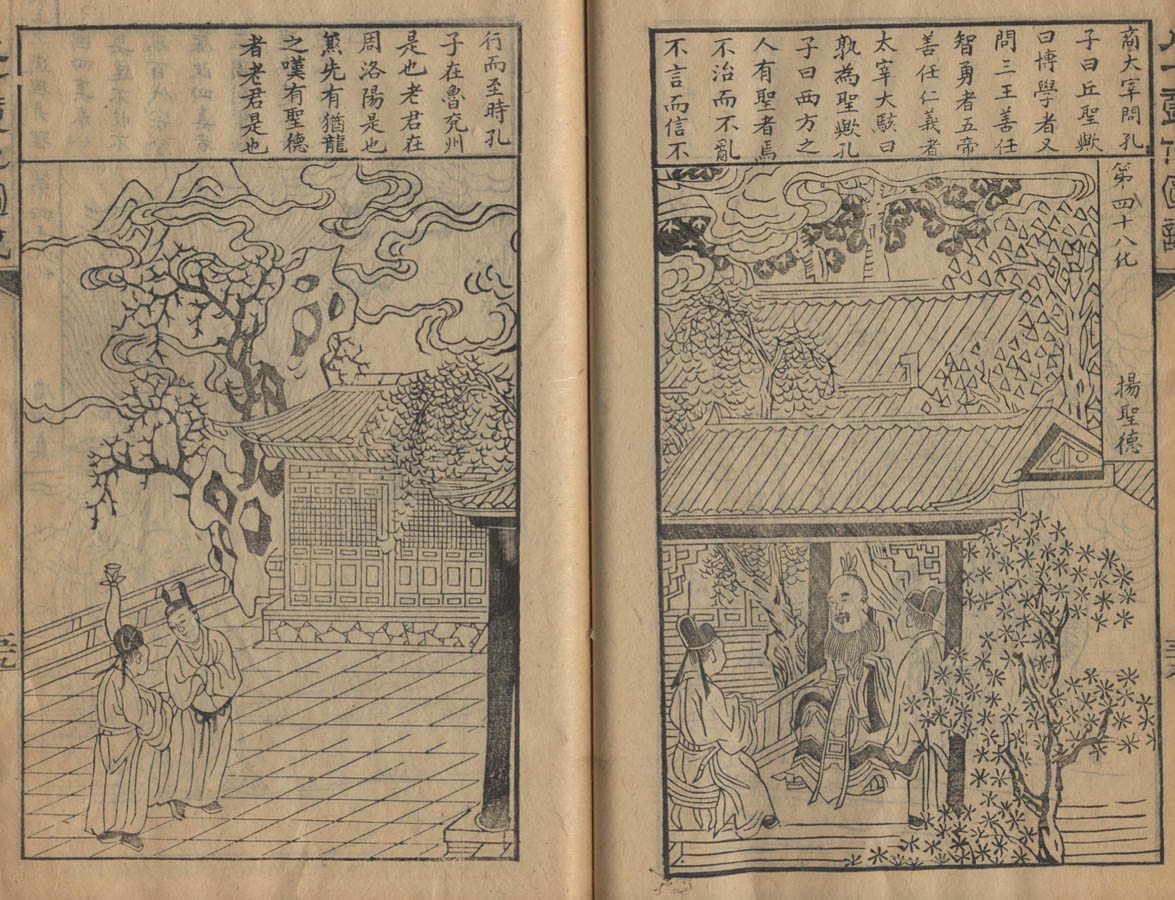 商大宰問孔
子曰丘聖歟
曰博學者又
問三王善任
智勇者五帝
善任仁義者
太宰大駭曰
孰為聖歟孔
子曰西方之
人有聖者焉
不治而不亂
不言而信不
第四十八化 揚聖德
行而至時孔
子在魯兖州
是也老君在
周洛陽是也
蒸先有猶龍
之嘆有聖德
者老君是也